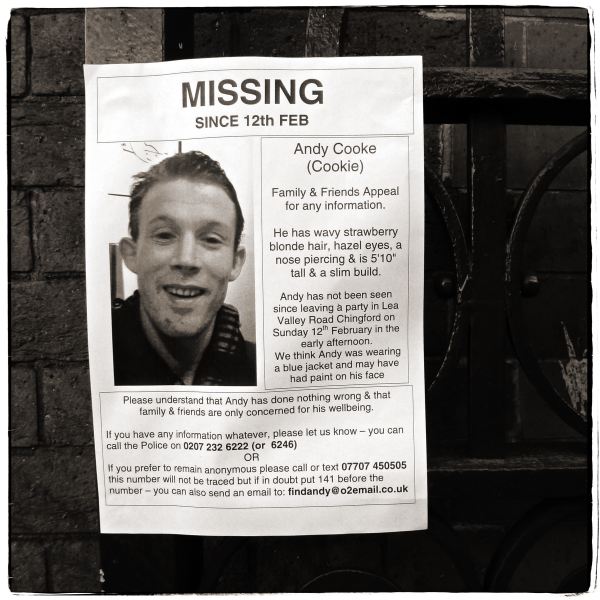 MISSING
SINCE 12th FEB
Andy Cooke
(Cookie)
Family & Friends Appeal
for any information.
He has wavy strawberry
blonde hair, hazel eyes, a
nose piercing & is 5'10"
tall & a slim build.
Andy has not been seen
since leaving a party in Lea
Valley Road Chingford on
Sunday 12th February in the
early afternoon.
We think Andy was wearing
a blue jacket and may have
had paint on his face
Please understand that Andy has done nothing wrong & that
family & friends are only concerned for his wellbeing.
If you have any information whatever, please let us know – you can
call the Police on 0207 232 6222 (or 6246)
OR
If you prefer to remain anonymous please call or text 07707 450505
this number will not be traced but if in doubt put 141 before the
number – you can also send an email to: findandy@o2email.co.uk